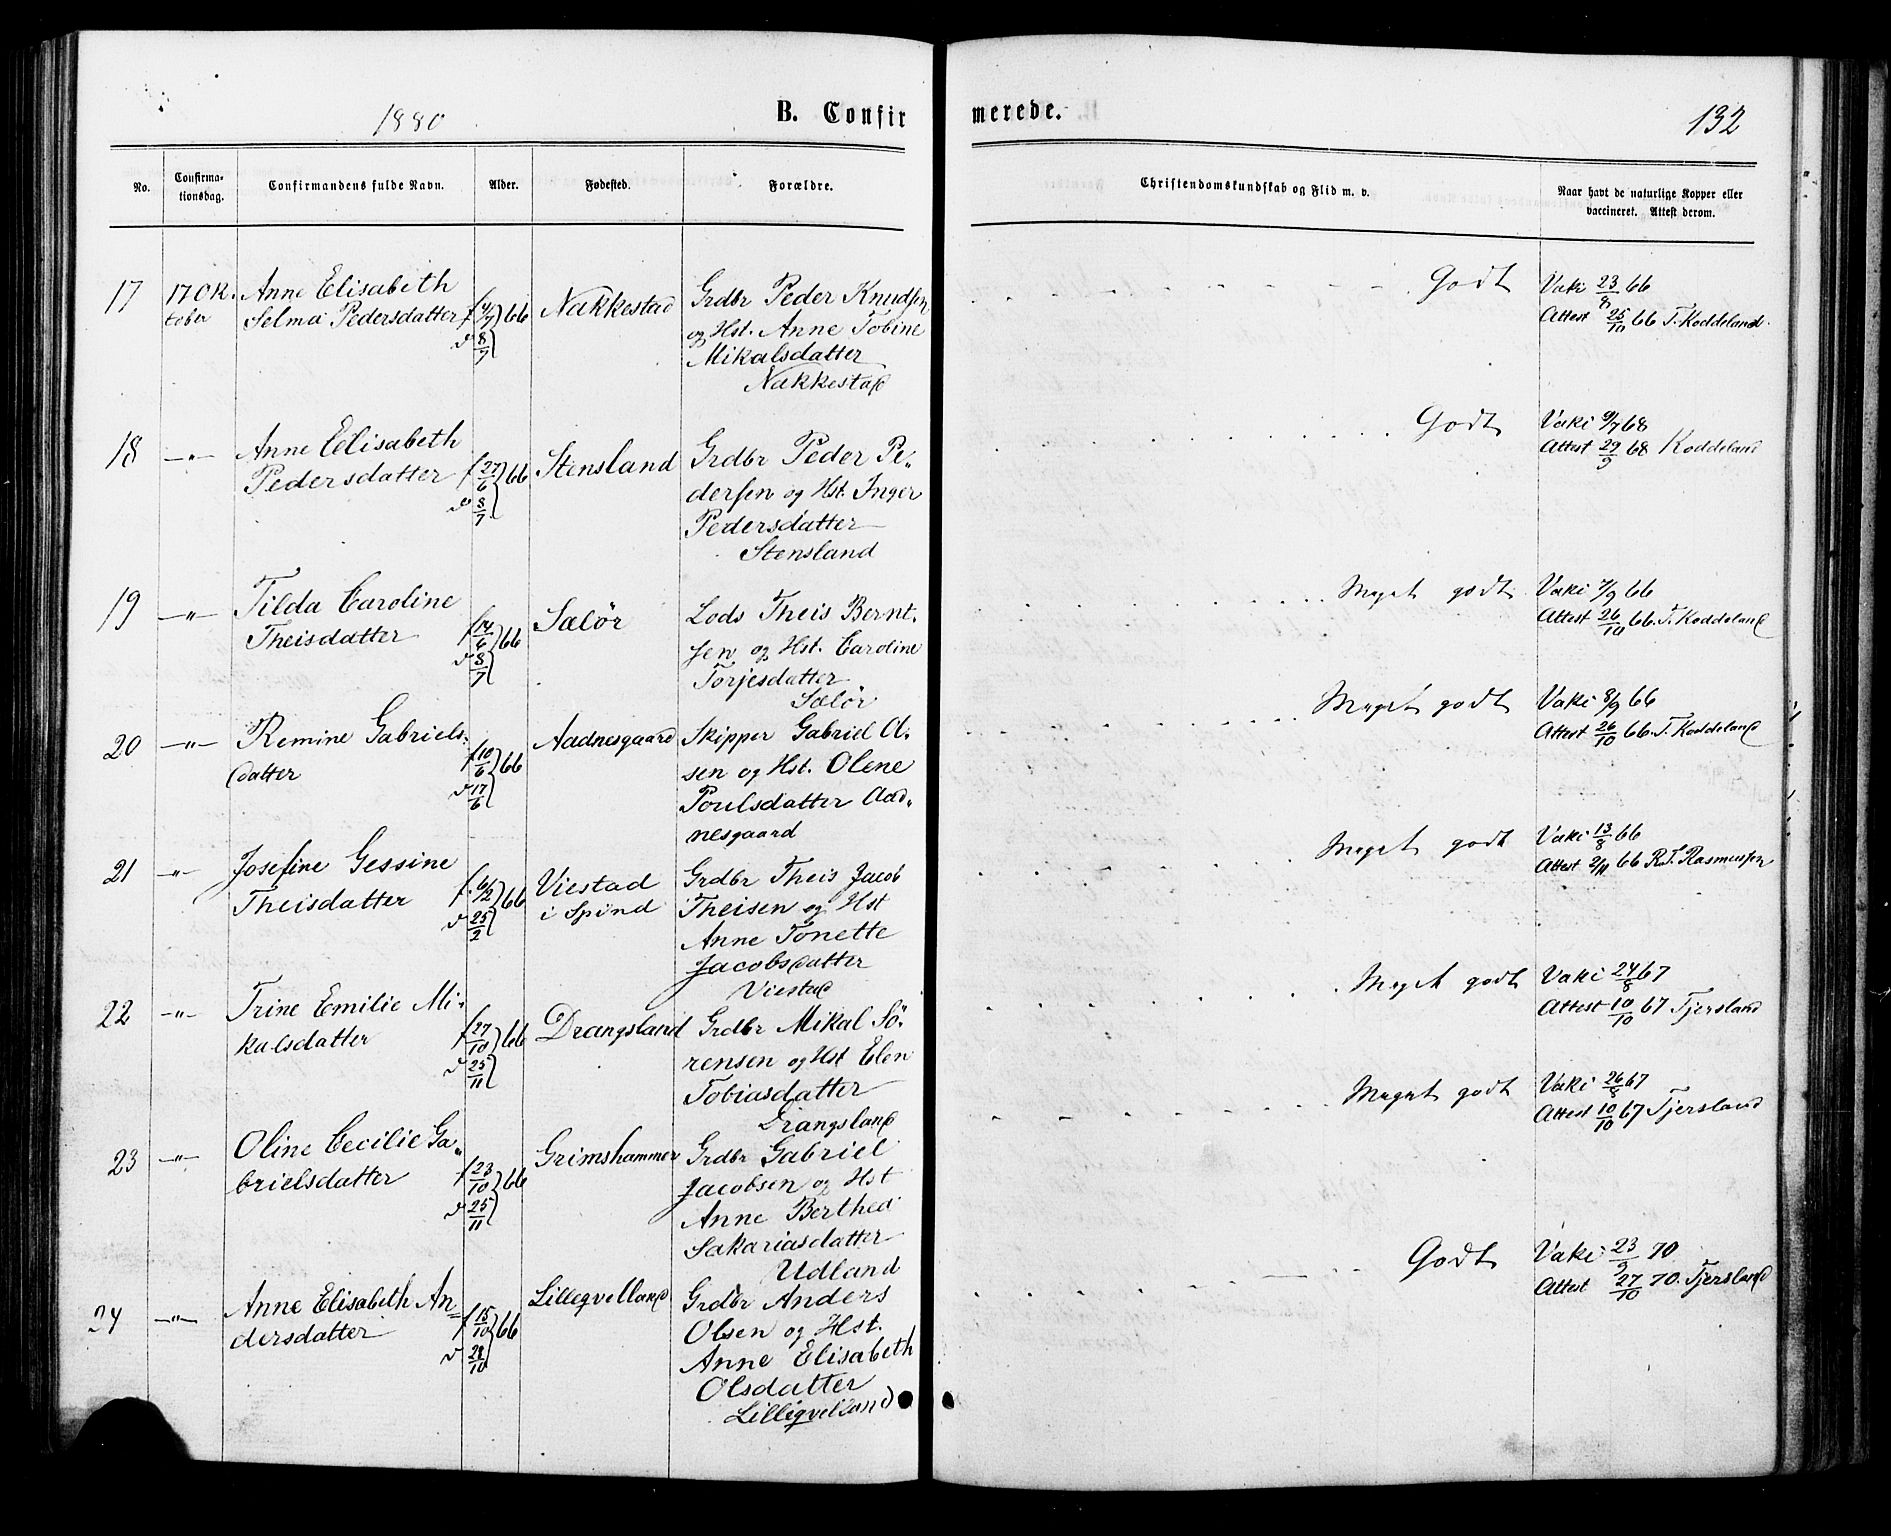 1880
B. Confirmerede.
132
No.
Confirma-
tionsdag.
Confirmandens fulde Navn.
Alder.
Fødested.
Forældre.
Christendomskundskab og Flid m. v.
Naar havt de naturlige Kopper eller
vaccineret. Attest derom.
17
17 Ok.
tober
Anne Elisabeth
Selma Pedersdatter
f 4/7 66
d 8/7
Nakkestad
Grdbr Peder Knudsen
og Hst. Anne Tobine
Mikalsdatter
Nakkestad
Godt
Vaki 23/8 66
Attest 25/10 66 T. Koddeland.
18
—"—
Anne Elisabeth
Pedersdatter
f 27/6 66
d 8/7
Stensland
Grdbr Peder Pe-
dersen og Hst. Inger
Pedersdatter
Stensland
Godt
Vaki 9/7 68
Attest 29/9 68 Koddeland
19
—"—
Tilda Caroline
Theisdatter
f 14/6 66
d 8/7
Sælör
Lods Theis Bernt-
sen og Hst. Caroline
Torjesdatter
Sælör
Meget godt
Vaki 7/9 66
Attest 26/10 66. T. Koddeland
20
—"—
Remine Gabriels-
datter
f 10/6 66
d 17/6
Aadnesgaard
Skipper Gabriel A-
sen og Hst. Olene
Poulsdatter Aad-
nesgaard
Meget godt
Vaki 8/9 66
Attest 26/10 66. T. Koddeland
21
—"—
Josefine Gessine
Theisdatter
f. 6/2 66
d 25/2
Viestad
i Spind
Grdbr Theis Jacob
Theisen og Hst
Anne Tonette
Jacobsdatter
Viestad
Meget godt
Vaki 13/8 66
Attest 2/11 66 R. T. Rasmussen
22
—"—
Trine Emilie Mi-
kalsdatter
f 27/10 66
d 25/11
Drangsland
Grdbr Mikal Sö-
rensen og Hst Elen
Tobiasdatter
Drangsland
Meget godt
Vaki 24/8 67
Attest 10/10 67 Tjersland
23
—"—
Oline Cecilie Ga-
brielsdatter
f 23/10 66
d 25/11
Grimshammer
Grdbr Gabriel
Jacobsen og Hst
Anne Berthea
Sakariasdatter
Udland
Meget godt
Vaki 26/8 67
Attest 10/10 67 Tjersland
24
—"—
Anne Elisabeth An-
dersdatter
f 15/10 66
d 28/10
Lilleqvelland
Grdbr Anders
Olsen og Hst.
Anne Elisabeth
Olsdatter
Lilleqvelland
Godt
Vaki 23/9 70
Attest 27/10 70. Tjersland